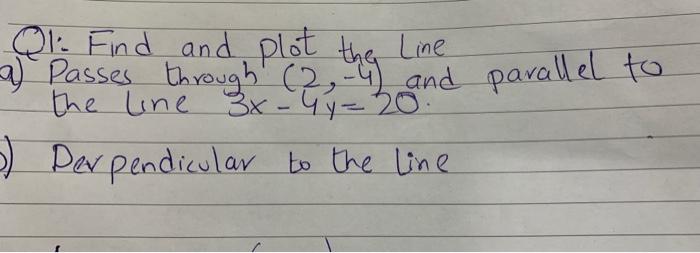 Q1:- Find and plot the Line
a) Passes through (2,-4) and parallel to
the Line 3x-4y=20.
b) Perpendicular to the line